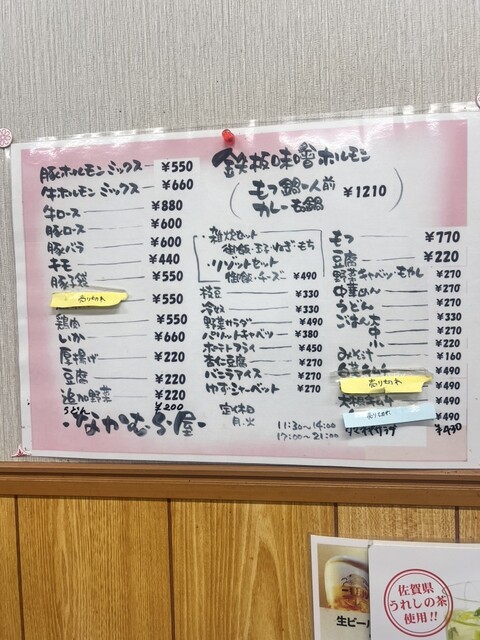 鉄板味噌ホルモン
もつ鍋一人前
カレーもつ鍋
¥1210
豚ホルモンミックス ¥550
牛ホルモンミックス ¥660
牛ロース ¥880
豚ロース ¥600
豚バラ ¥600
キモ ¥440
豚子袋 ¥550
売り切れ ¥550
鶏肉 ¥550
いか ¥660
厚揚げ ¥220
豆腐 ¥220
追加野菜 ¥220
うどん ¥200
・なかむら屋・
・雑炊セット
御飯・玉子・ねぎ・もち
・リゾットセット
御飯・チーズ ¥490
枝豆 ¥330
冷奴 ¥330
野菜サラダ ¥490
パリパリキャベツ ¥380
ポテトフライ ¥450
杏仁豆腐 ¥270
バニラアイス ¥270
ゆずシャーベット ¥270
定休日
月、火
11:30〜14:00
17:00〜21:00
もつ ¥770
豆腐 ¥220
野菜 キャベツ・モヤシ ¥270
中華めん ¥270
うどん ¥270
ごはん 大 ¥270
中 ¥270
小 ¥220
みそ汁 ¥160
白菜キムチ ¥490
売り切れ ¥490
大根キムチ ¥490
売り切れ ¥490
¥430
生ビール
佐賀県
うれしの茶
使用!!